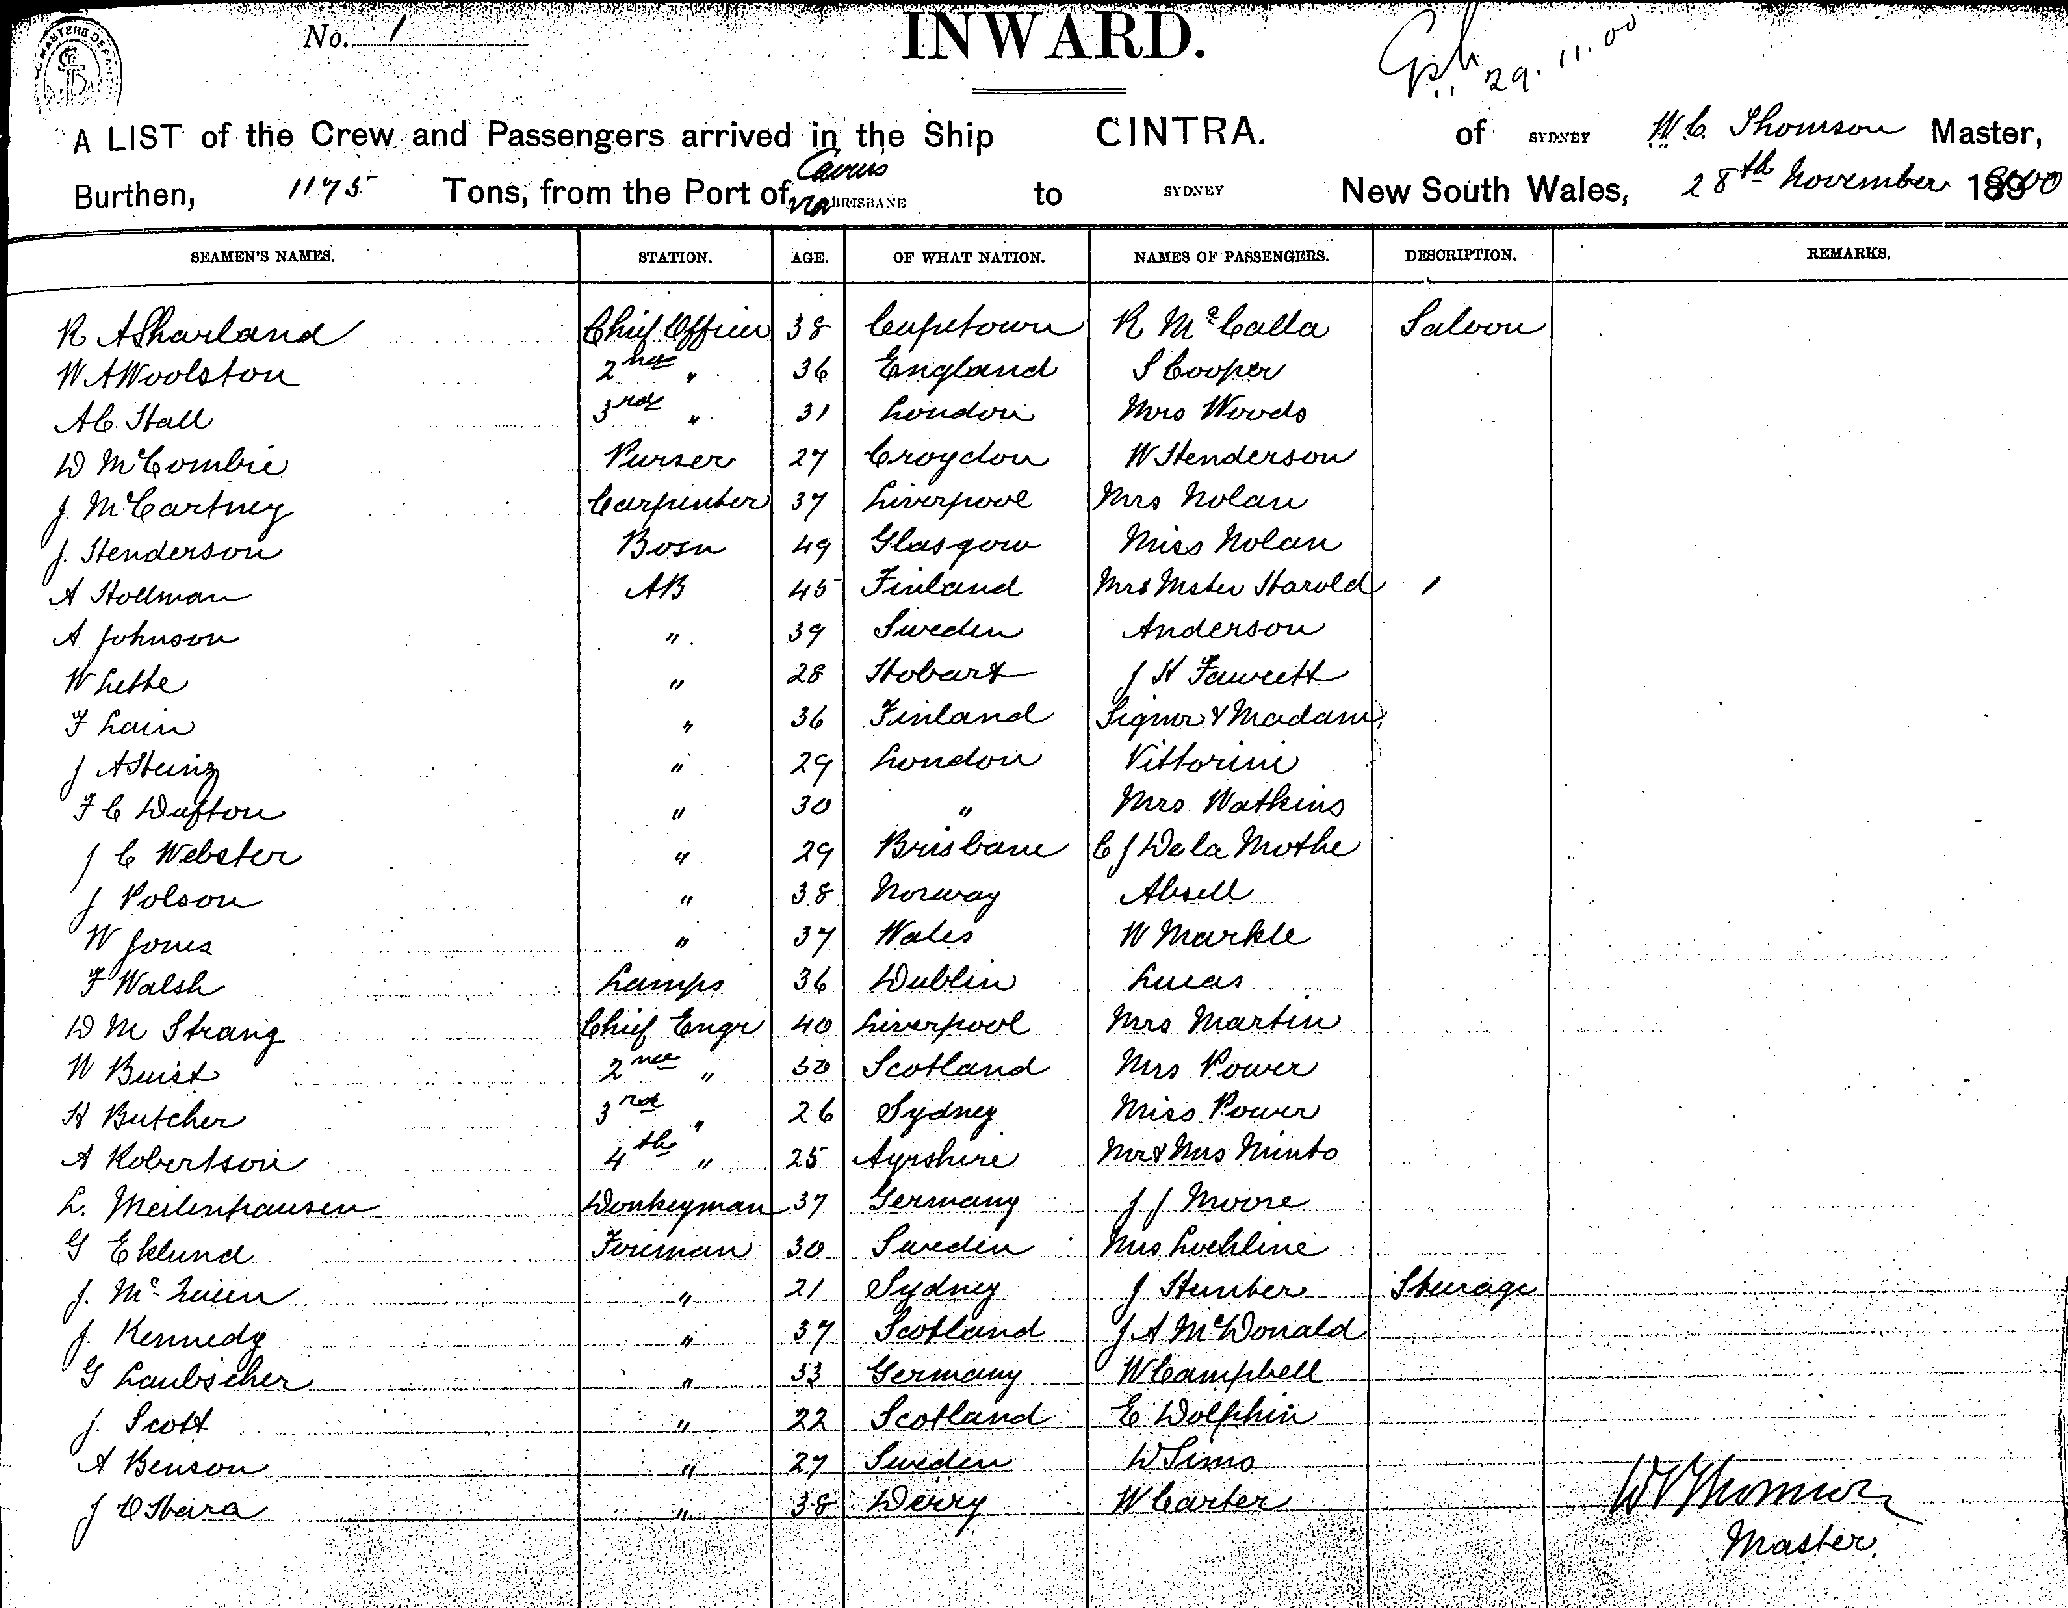 No. 1
INWARD.
29.11.00
A LIST of the Crew and Passengers arrived in the Ship CINTRA. of SYDNEY W C Thomson Master,
Burthen, 1175 Tons, from the Port of Cairns via BRISBANE to SYDNEY New South Wales, 28th November 1900
SEAMEN'S NAMES. STATION. AGE. OF WHAT NATION. NAMES OF PASSENGERS. DESCRIPTION. REMARKS.
R A Sharland Chief Officer 38 Capetown R McCalla Saloon
W A Woolston 2nd " 36 England S Cooper
A C Hall 3rd " 31 London Mrs Woods
D McCombie Purser 27 Croydon W Henderson
J McCartney Carpenter 37 Liverpool Mrs Nolan
J. Henderson Bosn 49 Glasgow Miss Nolan
A Hollman AB 45 Finland Mrs Mster Harold
A Johnson " 39 Sweden Anderson
W Lette " 28 Hobart J H Fawcett
F Lain " 36 Finland Signor & Madam
J A Heinz " 29 London Vittorini
F C Dafton " 30 " Mrs Watkins
J C Webster " 29 Brisbane C J De la Mothe
J Polson " 38 Norway Absell
W Jones " 37 Wales W Markle
F Walsh Lamps 36 Dublin Lucas
D M Strang Chief Engr 40 Liverpool Mrs Martin
W Buist 2nd " 50 Scotland Mrs Power
H Butcher 3rd " 26 Sydney Miss Power
A Robertson 4th " 25 Ayrshire Mr & Mrs Minto
L. Meilenhausen Donkeyman 37 Germany J J Moore
G Eklund Fireman 30 Sweden Mrs Lochline
J. McQueen " 21 Sydney J Hunter Steerage
J Kennedy " 37 Scotland J A McDonald
G Laubscher " 53 Germany W Campbell
J. Scott " 22 Scotland E Dolphin
A Benson " 27 Sweden W Sims
J OHara " 38 Derry W Carter
W C Thomson
Master.